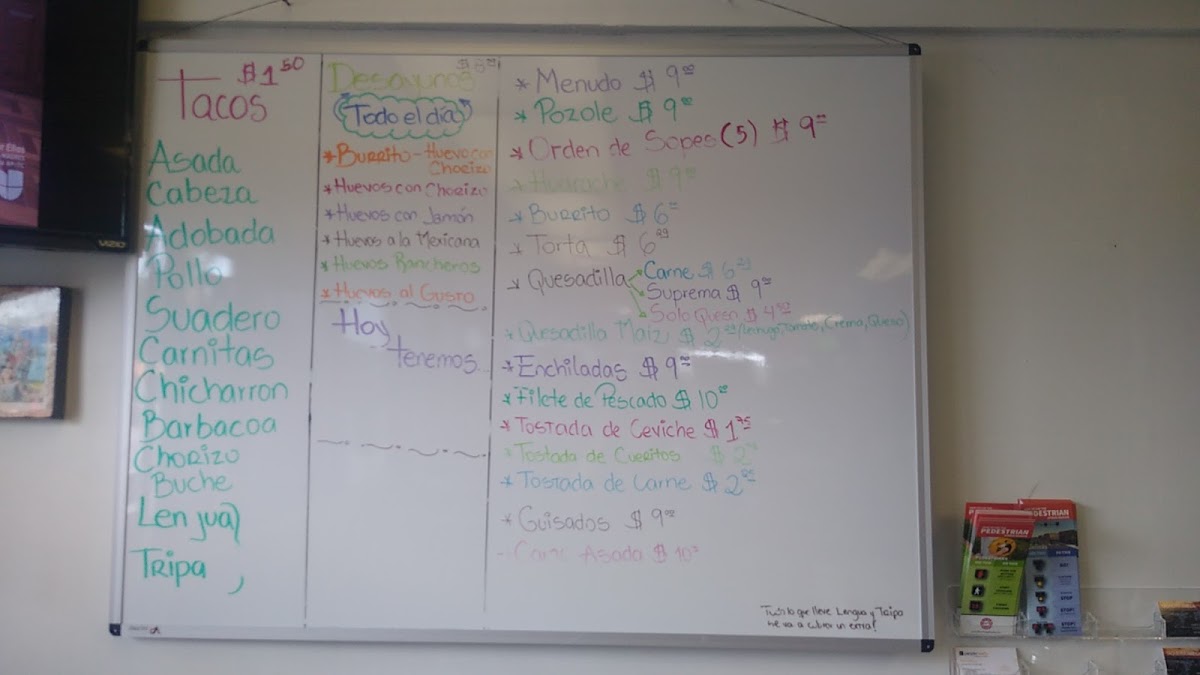 $1 50
Tacos
Asada
Cabeza
Adobada
Pollo
Suadero
Carnitas
Chicharron
Barbacoa
Chorizo
Buche
Lenjua
Tripa
Desayunos
Todo el día
* Burrito - Huevo con
Chorizo
* Huevos con Chorizo
* Huevos con Jamón
* Huevos a la Mexicana
* Huevos Rancheros
* Huevos al Gusto
Hoy
tenemos...
* Menudo $ 9 00
* Pozole $ 9 00
* Orden de Sopes (5) $ 9
* Huarache $ 9
* Burrito $ 6
* Torta $ 6 99
* Quesadilla
Carne $ 6
Suprema $ 9
Solo Queso $ 4 50
* Quesadilla Maiz $ 2 (Lechuga, Tomate, Crema, Queso)
* Enchiladas $ 9
* Filete de Pescado $ 10
* Tostada de Ceviche $ 1 75
* Tostada de Cueritos $ 2
* Tostada de Carne $ 2
* Guisados $ 9
Carne Asada $ 10
lo que lleve Lengua y Tripa
va a cobrar un extra!
VIZIO
PEDESTRIAN
PEDESTRIAN
STOP
STOP!